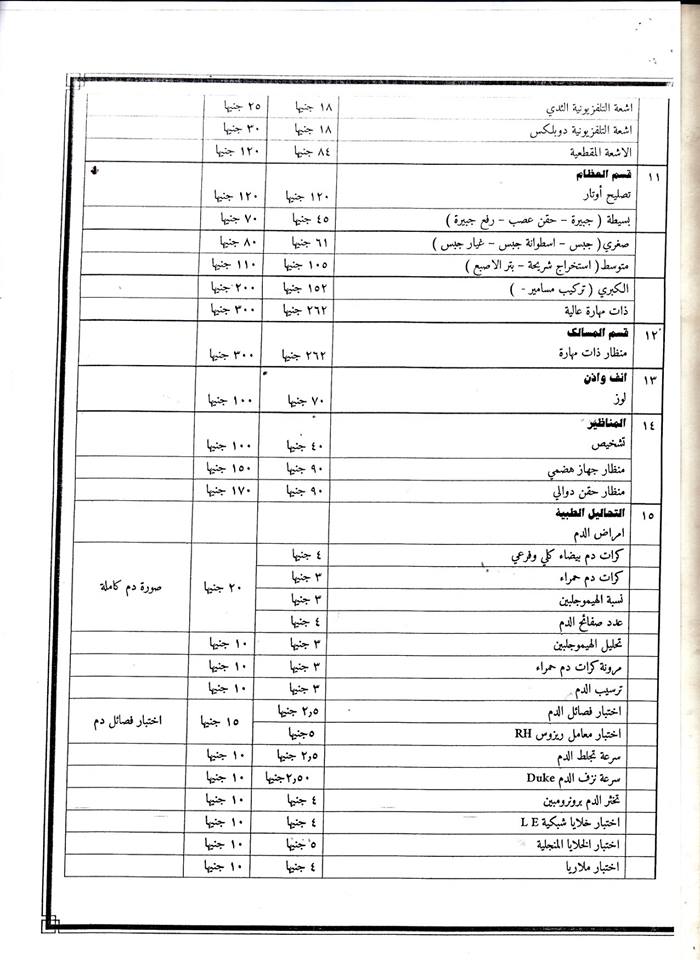 اشعة التلفزيونية الثدي ١٨ جنيها ٢٥ جنيها
اشعة التلفزيونية دوبلكس ١٨ جنيها ٣٠ جنيها
الاشعة المقطعية ٨٤ جنيها ١٢٠ جنيها
١١ قسم العظام
تصليح أوتار ١٢٠ جنيها ١٢٠ جنيها
بسيطة ( جبيرة – حقن عصب – رفع جبيرة ) ٤٥ جنيها ٧٠ جنيها
صغري( جبس – اسطوانة جبس – غيار جبس ) ٦١ جنيها ٨٠ جنيها
متوسط( استخراج شريحة – بتر الاصبع ) ١٠٥ جنيها ١١٠ جنيها
الكبري ( تركيب مسامير - ) ١٥٢ جنيها ٢٠٠ جنيها
ذات مهارة عالية ٢٦٢ جنيها ٣٠٠ جنيها
١٢ قسم المسالك
منظار ذات مهارة ٢٦٢ جنيها ٣٠٠ جنيها
١٣ انف واذن
لوز ٧٠ جنيها ١٠٠ جنيها
١٤ المناظير
تشخيص ٤٠ جنيها ١٠٠ جنيها
منظار جهاز هضمي ٩٠ جنيها ١٥٠ جنيها
منظار حقن دوالي ٩٠ جنيها ١٧٠ جنيها
١٥ التحاليل الطبية
امراض الدم
كرات دم بيضاء كلي وفرعي ٤ جنيها
كرات دم حمراء ٣ جنيها ٢٠ جنيها صورة دم كاملة
نسبة الهيموجلبين ٣ جنيها
عدد صفائح الدم ٤ جنيها
تحليل الهيموجلبين ٣ جنيها ١٠ جنيها
مرونة كرات دم حمراء ٣ جنيها ١٠ جنيها
ترسيب الدم ٣ جنيها ١٠ جنيها
اختبار فصائل الدم ٢,٥ جنيها ١٥ جنيها اختبار فصائل دم
اختبار معامل ريزوس RH ٥جنيها
سرعة تجلط الدم ٢,٥ جنيها ١٠ جنيها
سرعة نزف الدم Duke ٢,٥٠جنيها ١٠ جنيها
تخثر الدم برونرومبين ٤ جنيها ١٠ جنيها
اختبار خلايا شبكية L E ٤ جنيها ١٠ جنيها
اختبار الخلايا المنجلية ٥ جنيها ١٠ جنيها
اختبار ملاريا ٤ جنيها ١٠ جنيها